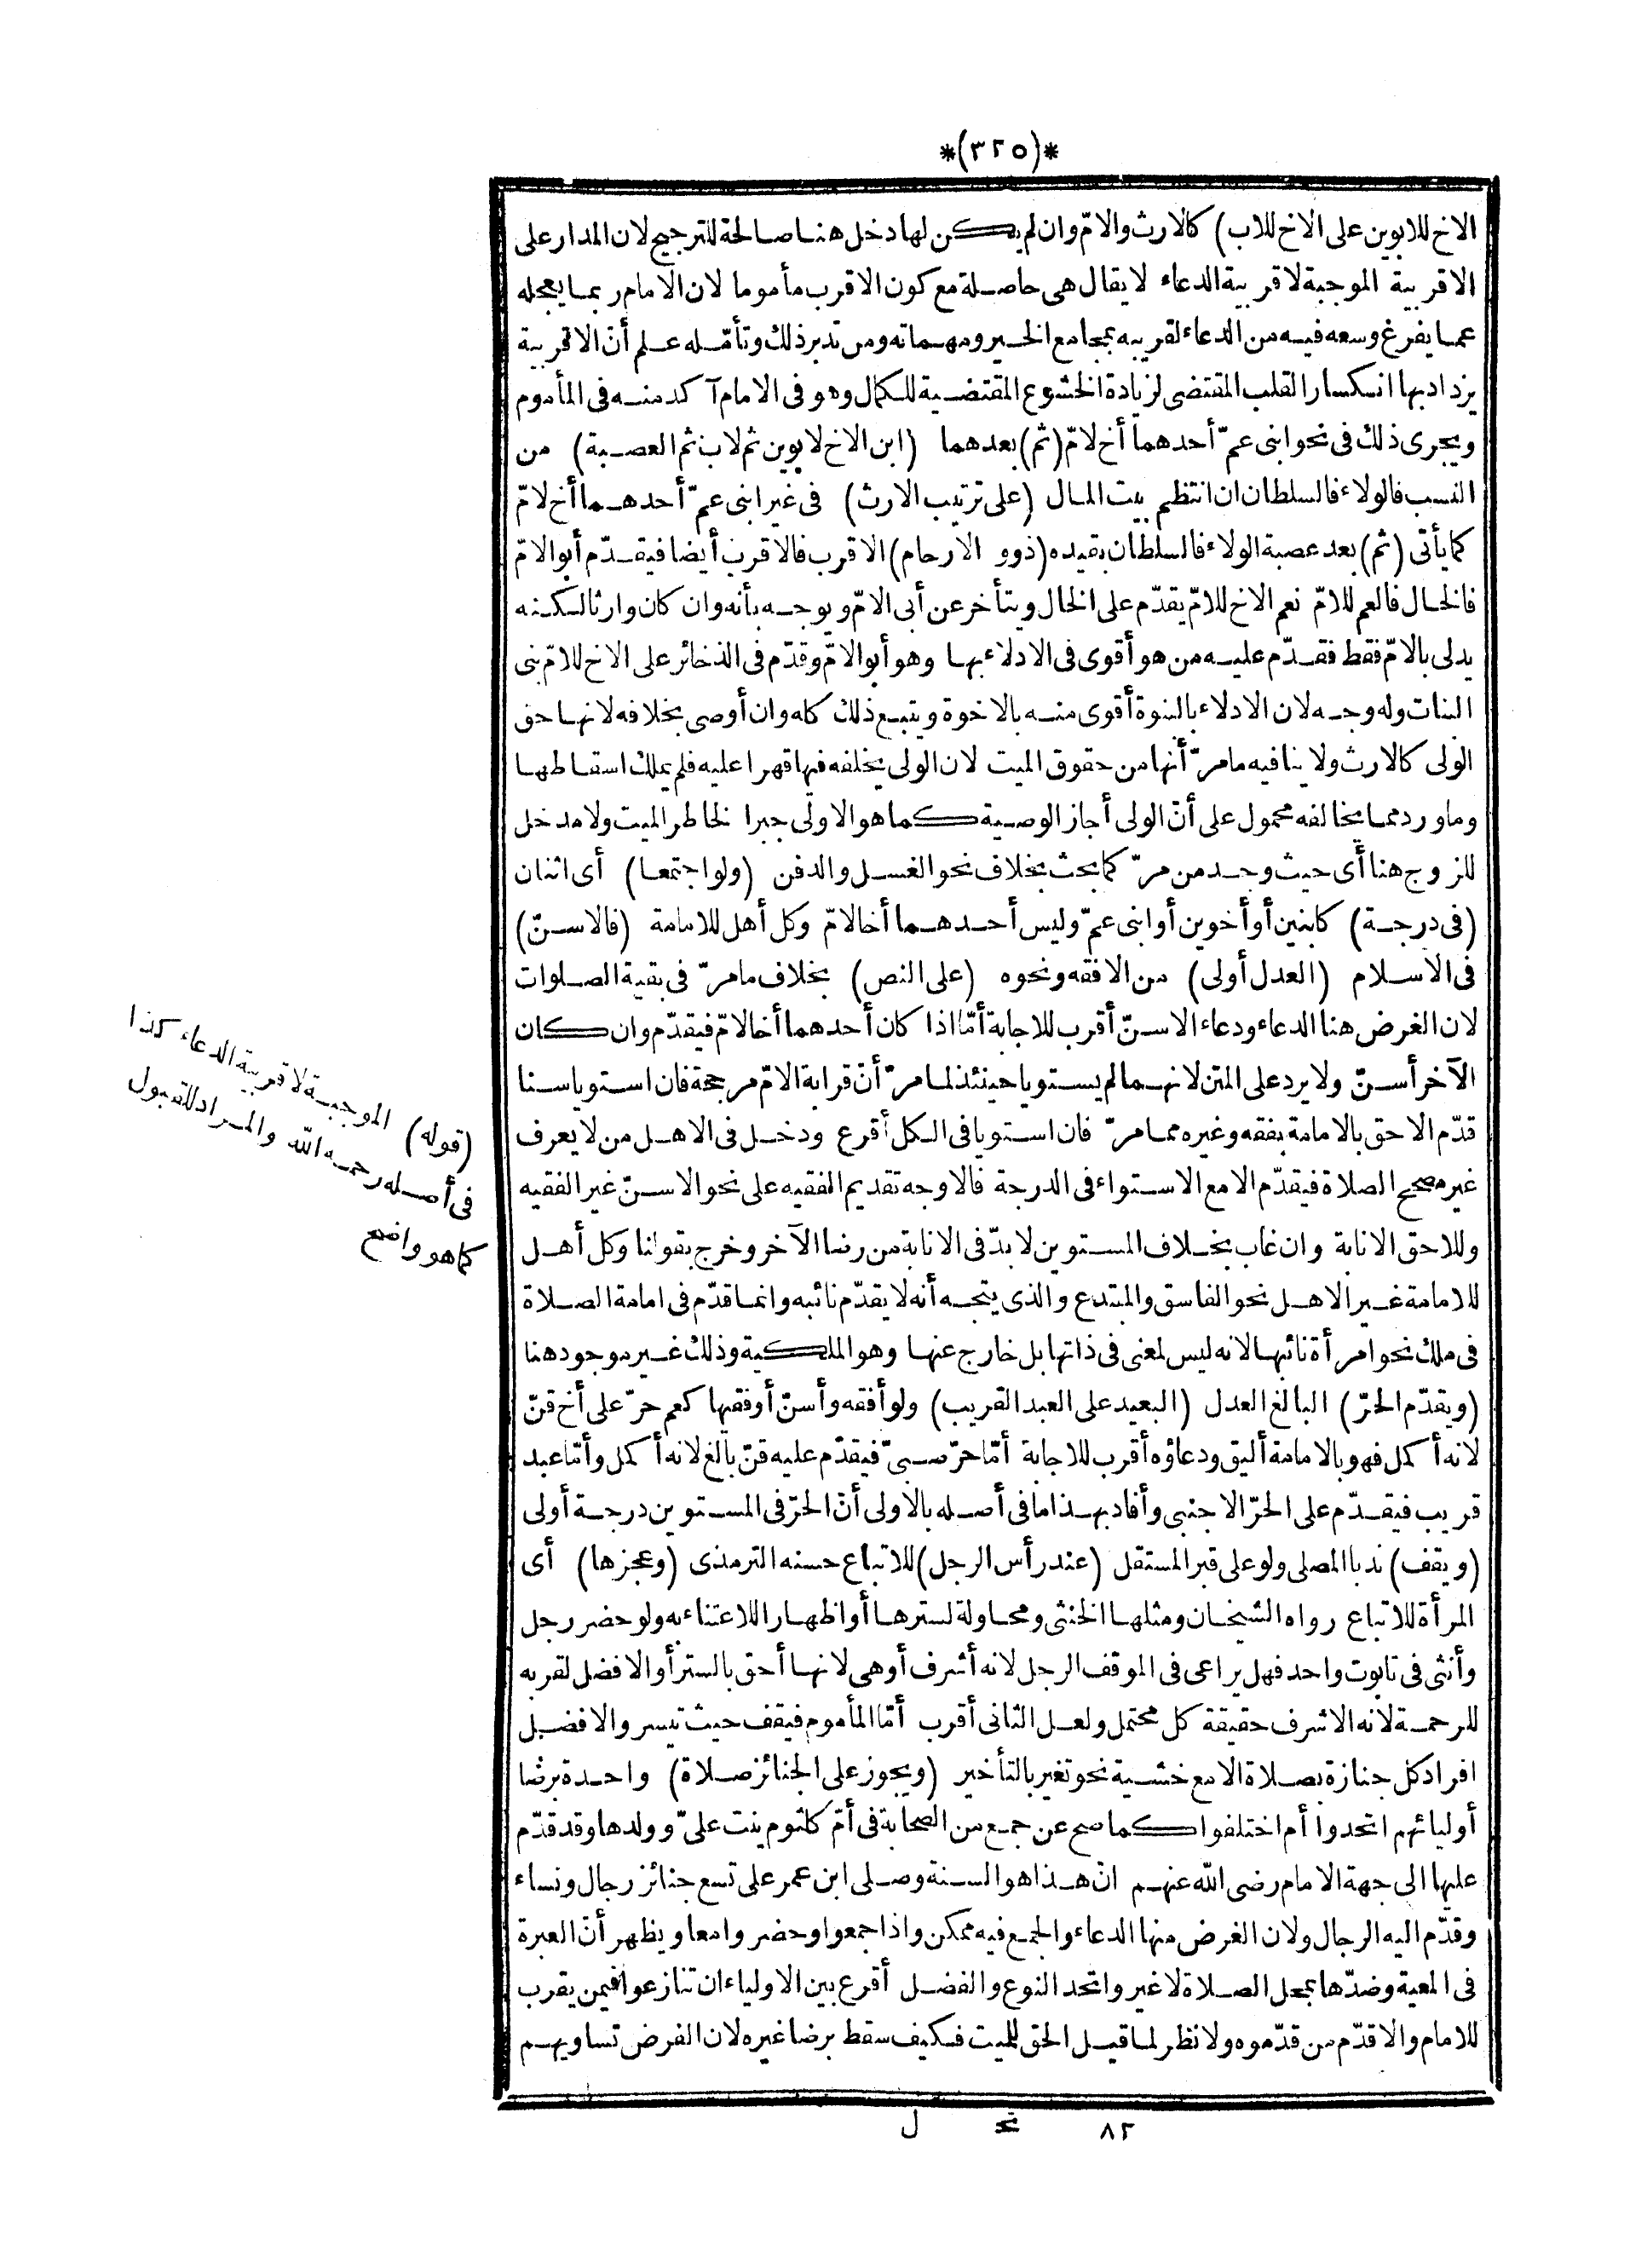 *(٣٢٥)*
الاخ للابوين على الاخ للاب) كالارث والامّ وان لم يكن لها دخل هنا صالحة للترجيح لان المدار على
الاقربية الموجبة لاقربية الدعاء لا يقال هى حاصلة مع كون الاقرب مأموما لان الامام ربما يعجله
عما يفرغ وسعه فيه من الدعاء لقريبه بمجامع الخير ومهماته ومن تدبر ذلك وتأمّله علم أنّ الاقربية
يزداد بها انكسار القلب المقتضى لزيادة الخشوع المقتضية للكمال وهو فى الامام آكد منه فى المأموم
ويجرى ذلك فى نحو ابنى عمّ أحدهما أخ لامّ (ثم) بعدهما (ابن الاخ لابوين ثم لاب ثم العصبة) من
النسب فالولاء فالسلطان ان انتظم بيت المال (على ترتيب الارث) فى غير ابنى عمّ أحدهما أخ لامّ
كما يأتى (ثم) بعد عصبة الولاء فالسلطان بقيده (ذوو الارحام) الاقرب فالاقرب أيضا فيقدّم أبو الامّ
فالخال فالعم للامّ نعم الاخ للامّ يقدّم على الخال ويتأخر عن أبى الامّ ويوجه بأنه وان كان وارثا لكنه
يدلى بالامّ فقط فقدّم عليه من هو أقوى فى الادلاء بها وهو أبو الامّ وقدّم فى الذخائر على الاخ للامّ بنى
البنات وله وجه لان الادلاء بالبنوة أقوى منه بالاخوة ويتبع ذلك كله وان أوصى بخلافه لانها حق
الولى كالارث ولا ينافيه ما مرّ أنها من حقوق الميت لان الولى يخلفه فيها قهرا عليه فلم يملك اسقاطها
وما ورد مما يخالفه محمول على أنّ الولى أجاز الوصية كما هو الاولى جبرا لخاطر الميت ولا مدخل
للزوج هنا أى حيث وجد من مرّ كما بحث بخلاف نحو الغسل والدفن (ولو اجتمعا) أى اثنان
(فى درجة) كابنين أو أخوين أو ابنى عمّ وليس أحدهما أخا لامّ وكل أهل للامامة (فالاسنّ)
فى الاسلام (العدل أولى) من الافقه ونحوه (على النص) بخلاف ما مرّ فى بقية الصلوات
لان الغرض هنا الدعاء ودعاء الاسنّ أقرب للاجابة أمّا اذا كان أحدهما أخا لامّ فيقدّم وان كان
الآخر أسنّ ولا يرد على المتن لانهما لم يستويا حينئذ لما مرّ أنّ قرابة الامّ مرجحة فان استويا سنا
قدّم الاحق بالامامة بفقه وغيره مما مرّ فان استويا فى الكل أقرع ودخل فى الاهل من لا يعرف
غير مصحح الصلاة فيقدّم الا مع الاستواء فى الدرجة فالاوجه تقديم الفقيه على نحو الاسنّ غير الفقيه
وللاحق الانابة وان غاب بخلاف المستويين لا بدّ فى الانابة من رضا الآخر وخرج بقولنا وكل أهل
للامامة غير الاهل نحو الفاسق والمبتدع والذى يتجه أنه لا يقدّم نائبه وانما قدّم فى امامة الصلاة
فى ملك نحو امرأة نائبها لانه ليس لمعنى فى ذاتها بل خارج عنها وهو الملكية وذلك غير موجود هنا
(ويقدّم الحرّ) البالغ العدل (البعيد على العبد القريب) ولو أفقه وأسنّ أو فقيها كعم حرّ على أخ قنّ
لانه أكمل فهو بالامامة أليق ودعاؤه أقرب للاجابة أمّا حرّ صبىّ فيقدّم عليه قنّ بالغ لانه أكمل وأمّا عبد
قريب فيقدّم على الحرّ الاجنبى وأفاد بهذا ما فى أصله بالاولى أنّ الحرّ فى المستويين درجة أولى
(ويقف) ندبا المصلى ولو على قبر المستقل (عند رأس الرجل) للاتباع حسنه الترمذى (وعجزها) أى
المرأة للاتباع رواه الشيخان ومثلها الخنثى ومحاولة لسترها أو اظهارا للاعتناء به ولو حضر رجل
وأنثى فى تابوت واحد فهل يراعى فى الموقف الرجل لانه أشرف أو هى لانها أحق بالستر أو الافضل لقربه
للرحمة لانه الاشرف حقيقة كل محتمل ولعل الثانى أقرب أمّا المأموم فيقف حيث تيسر والافضل
افراد كل جنازة بصلاة الا مع خشية نحو تغير بالتأخير (ويجوز على الجنائز صلاة) واحدة برضا
أوليائهم اتحدوا أم اختلفوا كما صح عن جمع من الصحابة فى أمّ كلثوم بنت علىّ وولدها وقد قدّم
عليها الى جهة الامام رضى الله عنهم انّ هذا هو السنة وصلى ابن عمر على تسع جنائز رجال ونساء
وقدّم اليه الرجال ولان الغرض منها الدعاء والجمع فيه ممكن واذا جمعوا وحضروا معا ويظهر أنّ العبرة
فى المعية وضدّها بمحل الصلاة لا غير واتحد النوع والفضل أقرع بين الاولياء ان تنازعوا فيمن يقرب
للامام والا قدّم من قدّموه ولا نظر لما قيل الحق للميت فكيف سقط برضا غيره لان الفرض تساويهم
٨٢ نح ل
(قوله) الموجبة لاقربية الدعاء كذا
فى أصله رحمه الله والمراد للقبول
كما هو واضح